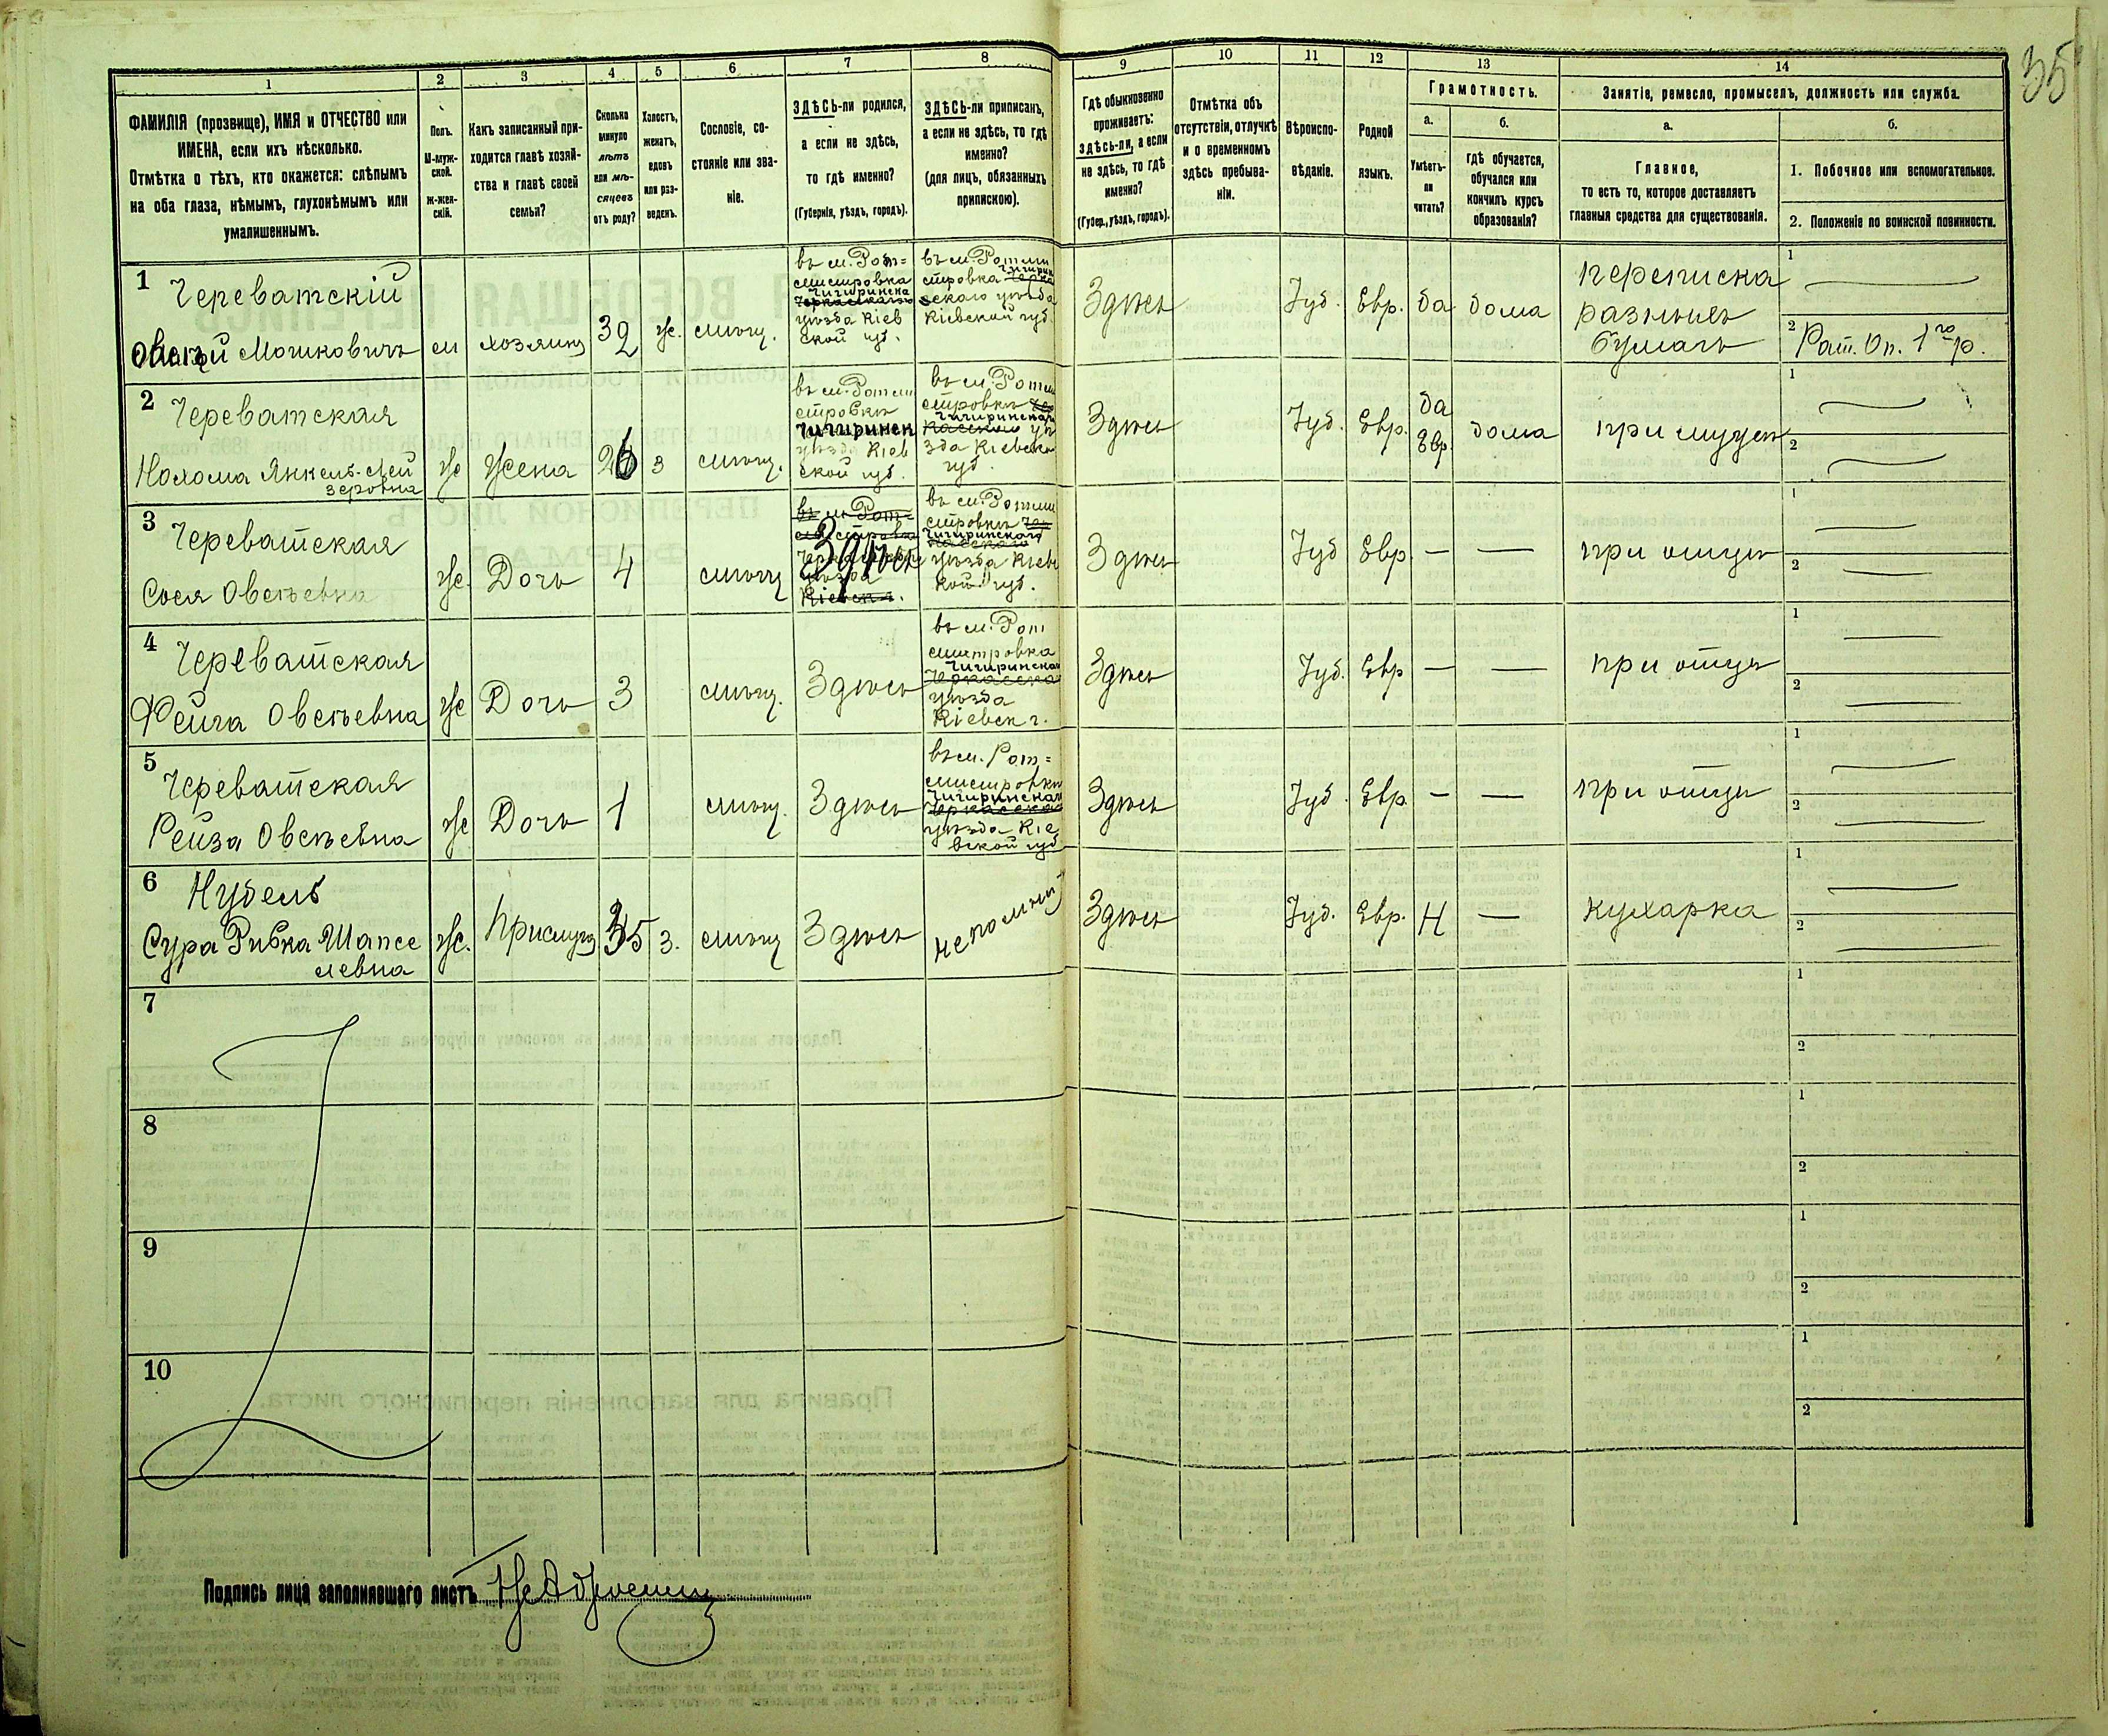 35
1
2
3
4
5
6
7
8
9
10
11
12
13
14
ФАМИЛІЯ (прозвище), ИМЯ и ОТЧЕСТВО или
ИМЕНА, если ихъ нѣсколько.
Отмѣтка о тѣхъ, кто окажется: слѣпымъ
на оба глаза, нѣмымъ, глухонѣмымъ или
умалишеннымъ.
Полъ.
М-муж-
ской.
Ж-жен-
скій.
Какъ записанный при-
ходится главѣ хозяй-
ства и главѣ своей
семьи?
Сколько
минуло
лѣтъ
или мѣ-
сяцевъ
отъ роду?
Холостъ,
женатъ,
вдовъ
или раз-
веденъ.
Сословіе, со-
стояніе или зва-
ніе.
ЗДѢСЬ-ли родился,
а если не здѣсь,
то гдѣ именно?
(Губернія, уѣздъ, городъ).
ЗДѢСЬ-ли приписанъ,
а если не здѣсь, то гдѣ
именно?
(для лицъ, обязанныхъ
припискою).
Гдѣ обыкновенно
проживаетъ:
здѣсь-ли, а если
не здѣсь, то гдѣ
именно?
(Губер., уѣздъ, городъ).
Отмѣтка объ
отсутствіи, отлучкѣ
и о временномъ
здѣсь пребыва-
ніи.
Вѣроиспо-
вѣданіе.
Родной
языкъ.
Грамотность.
а.
Умѣетъ-
ли
читать?
б.
гдѣ обучается,
обучался или
кончилъ курсъ
образованія?
Занятіе, ремесло, промыселъ, должность или служба.
а.
Главное,
то есть то, которое доставляетъ
главныя средства для существованія.
б.
1. Побочное или вспомогательное.
2. Положеніе по воинской повинности.
1
Череватскій
Мошковичъ
м
хозяинъ
32
ж.
мѣщ.
въ м. Рот=
мистровка
Чигиринска
уѣзда Кіев
ской губ.
въ м. Ротми
стровка
Чигирин
скаго уѣзда
Кіевской губ.
Здѣсь
Іуд.
Евр.
да
дома
переписка
разныхъ
бумагъ
1
2
Рат. Оп. 1го р.
2
Череватская
Янкель-Лей
зеровна
ж
жена
26
з
мѣщ.
въ м. Ротми
стровкѣ
Чигиринск
уѣзда Кіев
ской губ.
въ м. Ротми
стровкѣ
Чигиринскаго
уѣ
зда Кіевско
губ.
Здѣсь
Іуд.
Евр.
да
Евр.
дома
при мужѣ
1
2
3
Череватская
Сося Овсѣевна
ж.
Дочь
4
мѣщ
Здѣсь
въ м. Ротми
стровкѣ
Чигиринскаго
уѣзда Кіевс
кой губ.
Здѣсь
Іуд
Евр.
—
—
при отцѣ
1
2
4
Череватская
Фейга Овсѣевна
ж
Дочь
3
мѣщ.
Здѣсь
въ м. Рот
мистровка
Чигиринскаго
уѣзда
Кіевск г.
Здѣсь
Іуд.
Евр
—
—
при отцѣ
1
2
5
Череватская
Рейза Овсѣевна
ж
Дочь
1
мѣщ.
Здѣсь
въ м. Рот=
мистровкѣ
Чигиринскаго
уѣзда Кіе
вской губ
Здѣсь
Іуд.
Евр.
—
—
при отцѣ
1
2
6
Нудель
Сура Ривка Шапсе
левна
ж.
Прислуга
35
з.
мѣщ
Здѣсь
не помнитъ
Здѣсь
Іуд.
Евр.
Н
—
кухарка
1
2
7
1
2
8
1
2
9
1
2
10
1
2
Подпись лица заполнявшаго листъ